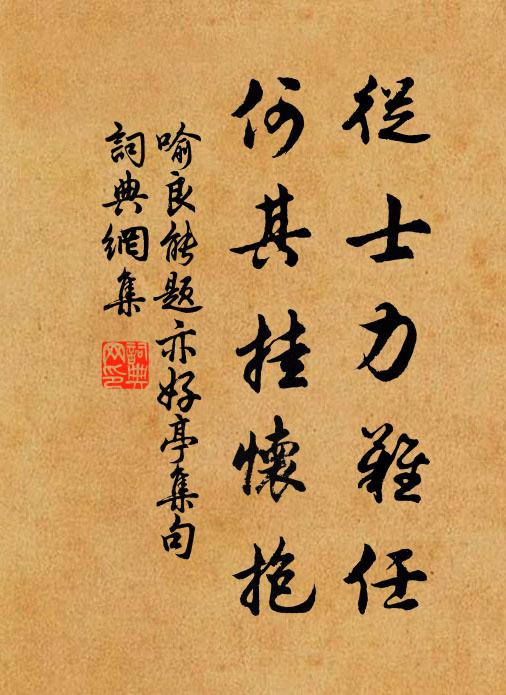 從士力難任
何其挂懷抱
喻良能題亦好亭集句
詞典網集
詞典
網印